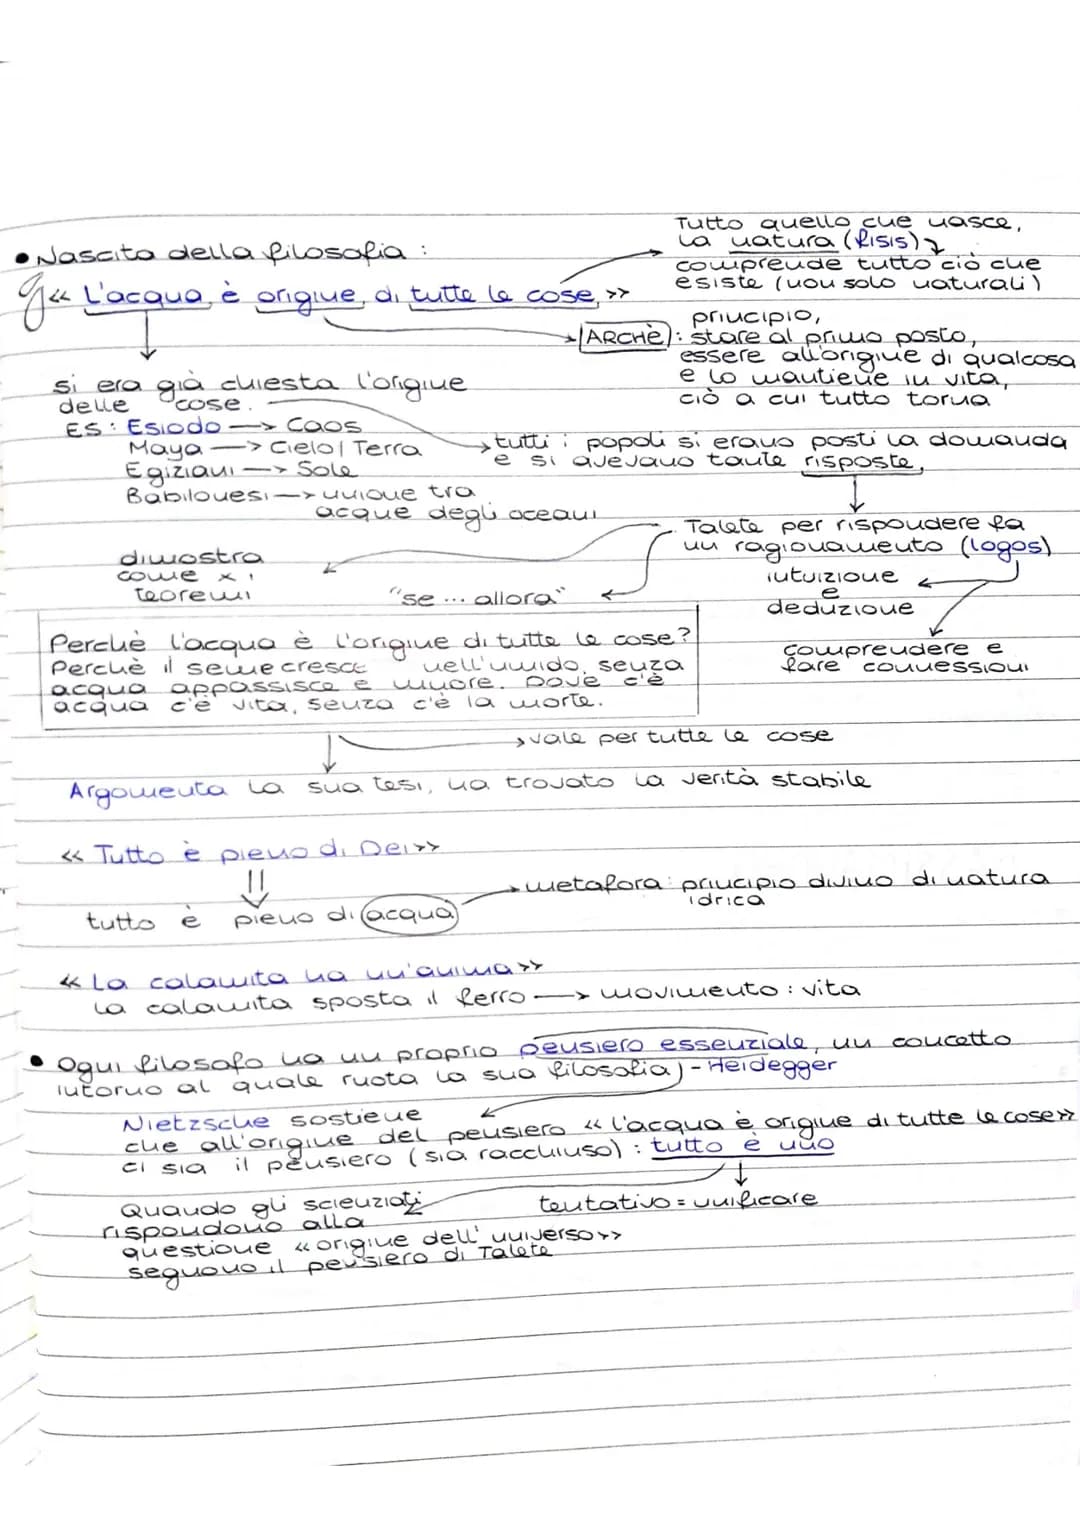 Tutto quello che nasce,
• Nascita della filosofia :
la natura (fisis)
comprende tutto ciò che
esiste (non solo naturali)
<< L'acqua è origine di tutte le cose >>
principio,
ARCHÈ : stare al primo posto,
essere all'origine di qualcosa
e lo mantiene in vita,
ciò a cui tutto torna
si era già chiesta l'origine
delle cose.
ES : Esiodo → Caos
Maya → Cielo/Terra
Egiziani → Sole
Babilonesi → unione tra
acque degli oceani
tutti i popoli si erano posti la domanda
e si avevano tante risposte,
Talete per rispondere fa
un ragionamento (logos)
intuizione
e
deduzione
comprendere e
fare connessioni
dimostra
come x i
teoremi
"se ... allora"
Perchè l'acqua è l'origine di tutte le cose?
Perchè il seme cresce nell'umido, senza
acqua appassisce e muore. Dove c'è
acqua c'è vita, senza c'è la morte.
→ vale per tutte le cose
Argomenta la sua tesi, ha trovato la verità stabile
<< Tutto è pieno di Dei >>
tutto è pieno di acqua
→ metafora : principio divino di natura
idrica
<< La calamita ha un'anima >>
la calamita sposta il ferro → movimento : vita
• Ogni filosofo ha un proprio pensiero essenziale, un concetto
intorno al quale ruota la sua filosofia) - Heidegger
Nietzsche sostiene
che all'origine del pensiero << l'acqua è origine di tutte le cose >>
ci sia il pensiero (sia racchiuso) : tutto è uno
tentativo = unificare
Quando gli scienziati
rispondono alla
questione << origine dell'universo >>
seguono il pensiero di Talete